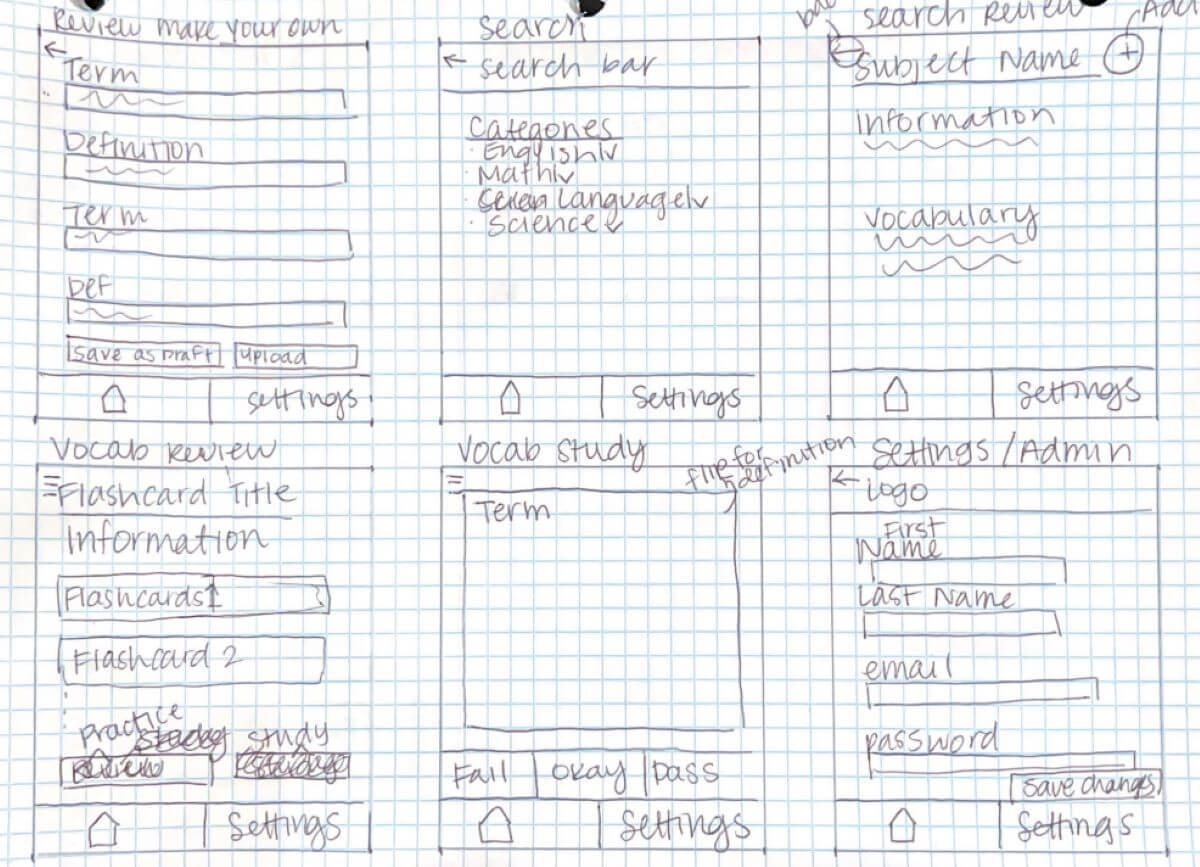 Review make your own
←
Term
Definition
Term
Def
Save as Draft
upload
settings
Search
← search bar
Categories
· English
· Math
· Language
· Science
Settings
search Review
Subject Name +
information
vocabulary
Settings
Vocab Review
Flashcard Title
Information
Flashcards 1
Flashcard 2
practice
study
Settings
Vocab Study
flip for
definition
Term
Fail
okay
pass
Settings
Settings / Admin
← Logo
First
Name
Last Name
email
password
save changes
Settings